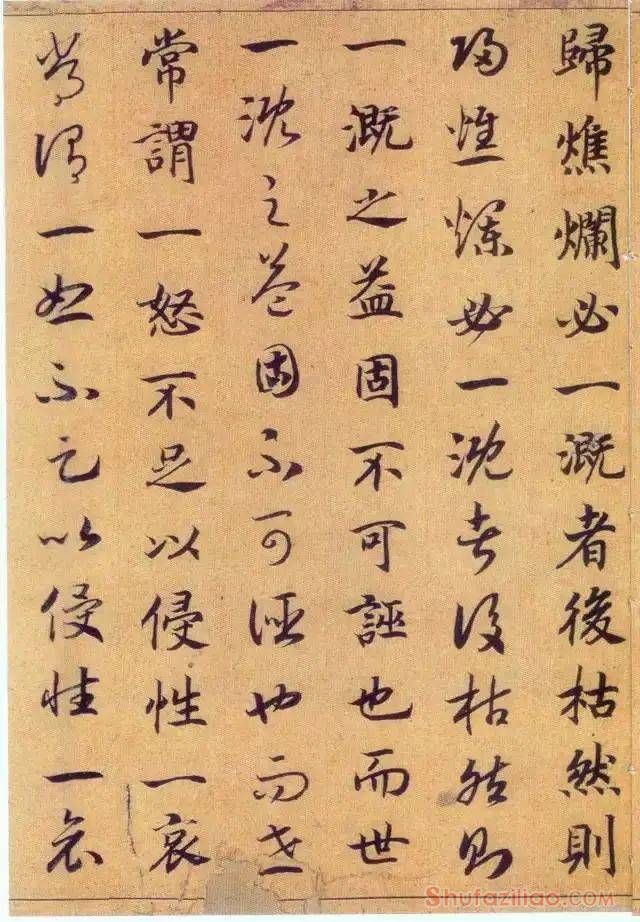 歸燋爛必一溉者後枯然則
歸燋爛必一溉者後枯然則
一溉之益固不可誣也而世
一溉之益固不可誣也而世
常謂一怒不足以侵性一哀
常謂一怒不足以侵性一哀
Shufaziliao.com